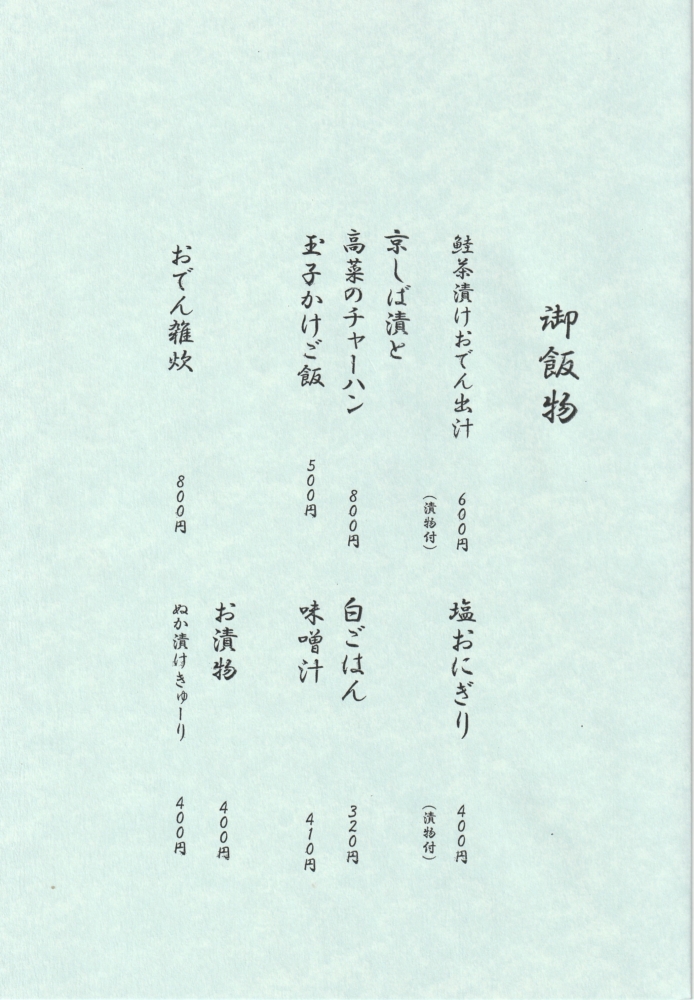 御飯物
鮭茶漬けおでん出汁
600円
(漬物付)
京しば漬と
高菜のチャーハン
800円
玉子かけご飯
500円
おでん雑炊
800円
塩おにぎり
400円
(漬物付)
白ごはん
320円
味噌汁
410円
お漬物
400円
ぬか漬けきゅーり
400円